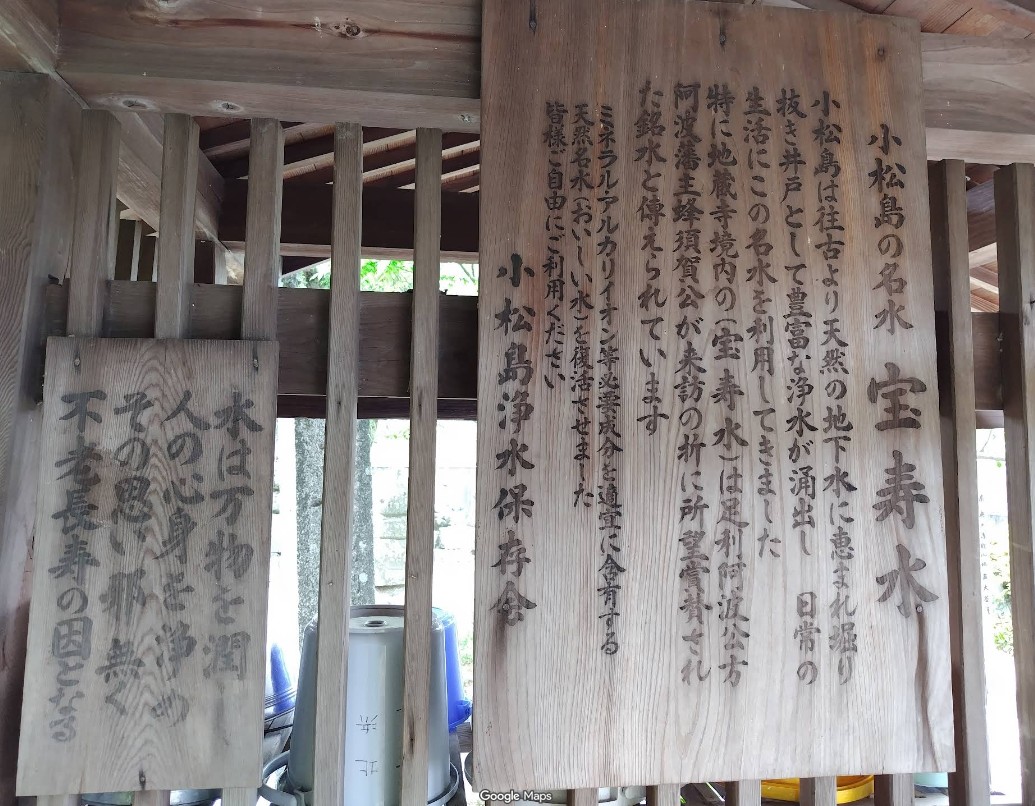 小松島の名水 宝寿水
小松島は往古より天然の地下水に恵まれ堀り
抜き井戸として豊富な浄水が涌出し 日常の
生活にこの名水を利用してきました
特に地蔵寺境内の(宝寿水)は足利阿波公方
阿波藩主蜂須賀公が来訪の折に所望賞賛され
た銘水と傳えられています
ミネラルアルカリイオン等必要成分を適宜に含有する
天然名水(おいしい水)を復活させました
皆様ご自由にご利用ください
小松島浄水保存会
水は万物を潤し
人の心身を浄め
その思い邪無く
不老長寿の因となる
北 浜
Google Maps